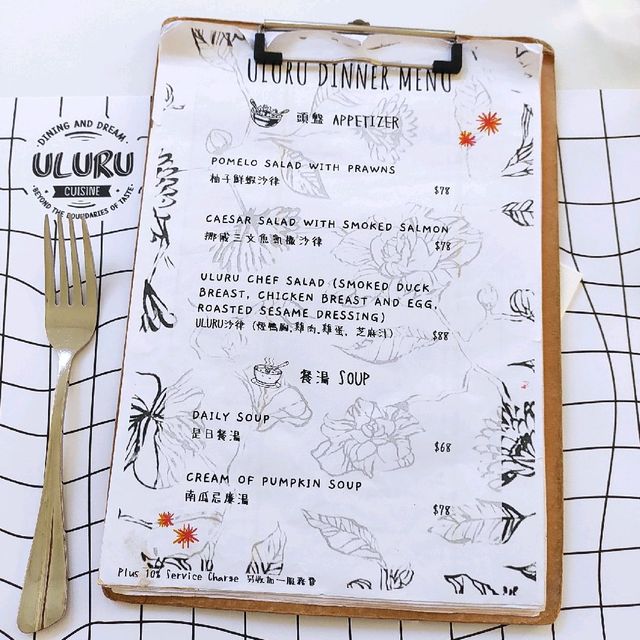 DINING AND DREAM
ULURU
CUISINE
BEYOND THE BOUNDARIES OF TASTE
ULURU DINNER MENU
頭盤 APPETIZER
POMELO SALAD WITH PRAWNS
柚子鮮蝦沙律
$78
CAESAR SALAD WITH SMOKED SALMON
挪威三文魚凱撒沙律
$78
ULURU CHEF SALAD (SMOKED DUCK
BREAST, CHICKEN BREAST AND EGG,
ROASTED SESAME DRESSING)
ULURU沙律 (煙鴨胸,雞肉,雞蛋, 芝麻汁)
$88
餐湯 SOUP
DAILY SOUP
是日餐湯
$68
CREAM OF PUMPKIN SOUP
南瓜忌廉湯
$78
Plus 10% Service Charge 另收加一服務費